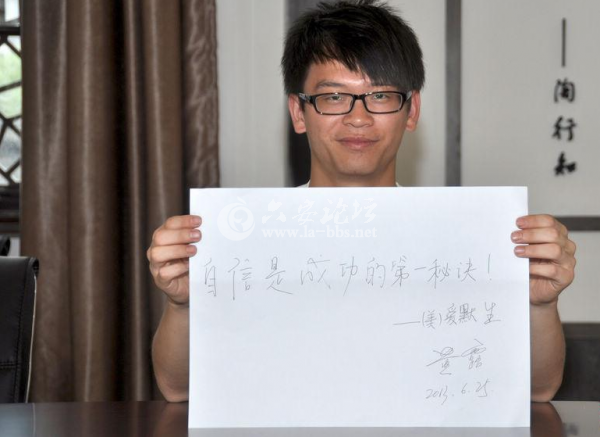 六安论坛
www.la-bbs.net
自信是成功的第一秘诀!
——(美)爱默生
黄露
2013.6.25
——陶行知